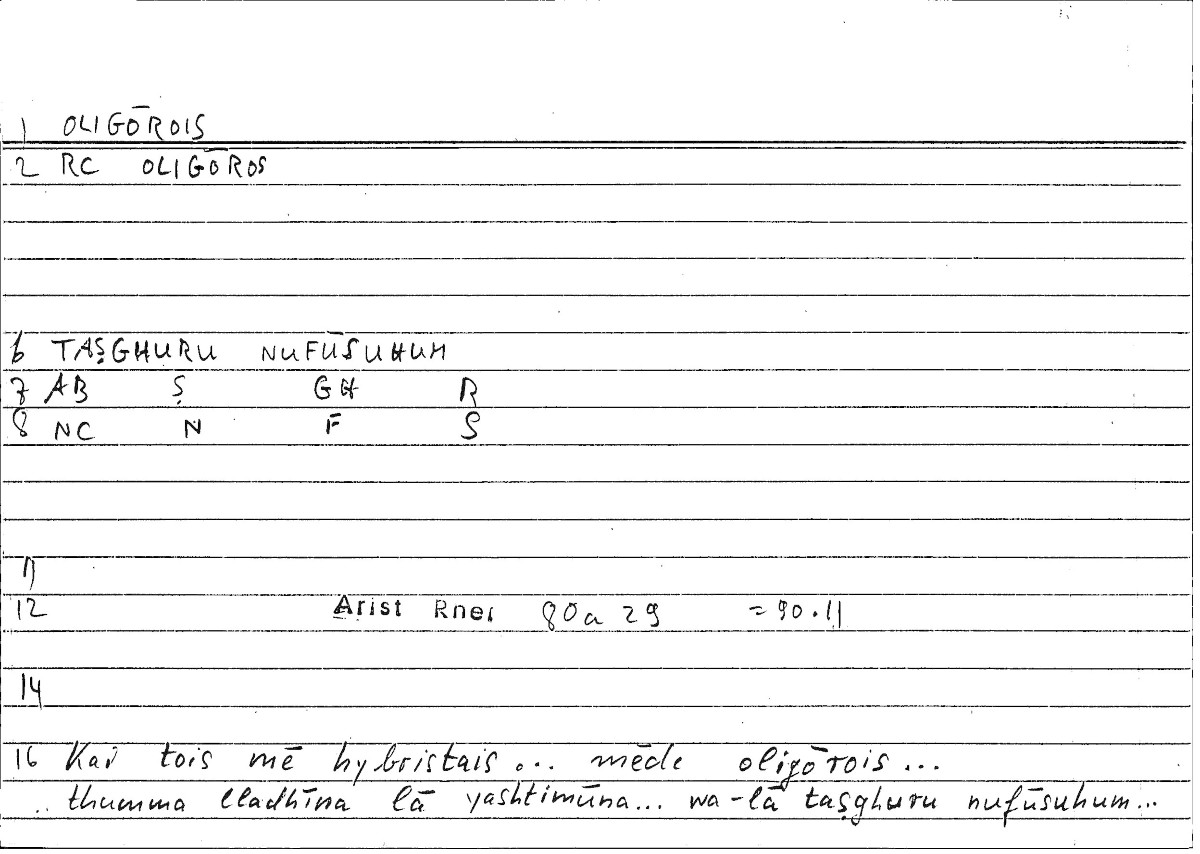 1 OLIGŌROIS
2 RC OLIGŌROS
6 TAṢGHURU NUFŪSUHUM
7 AB Ṣ GH R
8 NC N F S
11
12 Arist Rhet 80a 29 = 90.11
14
16 Kai tois mē hybristais ... mēde oligōrois ...
.. thumma lladhīna lā yashtimūna... wa-lā taṣghuru nufūsuhum...